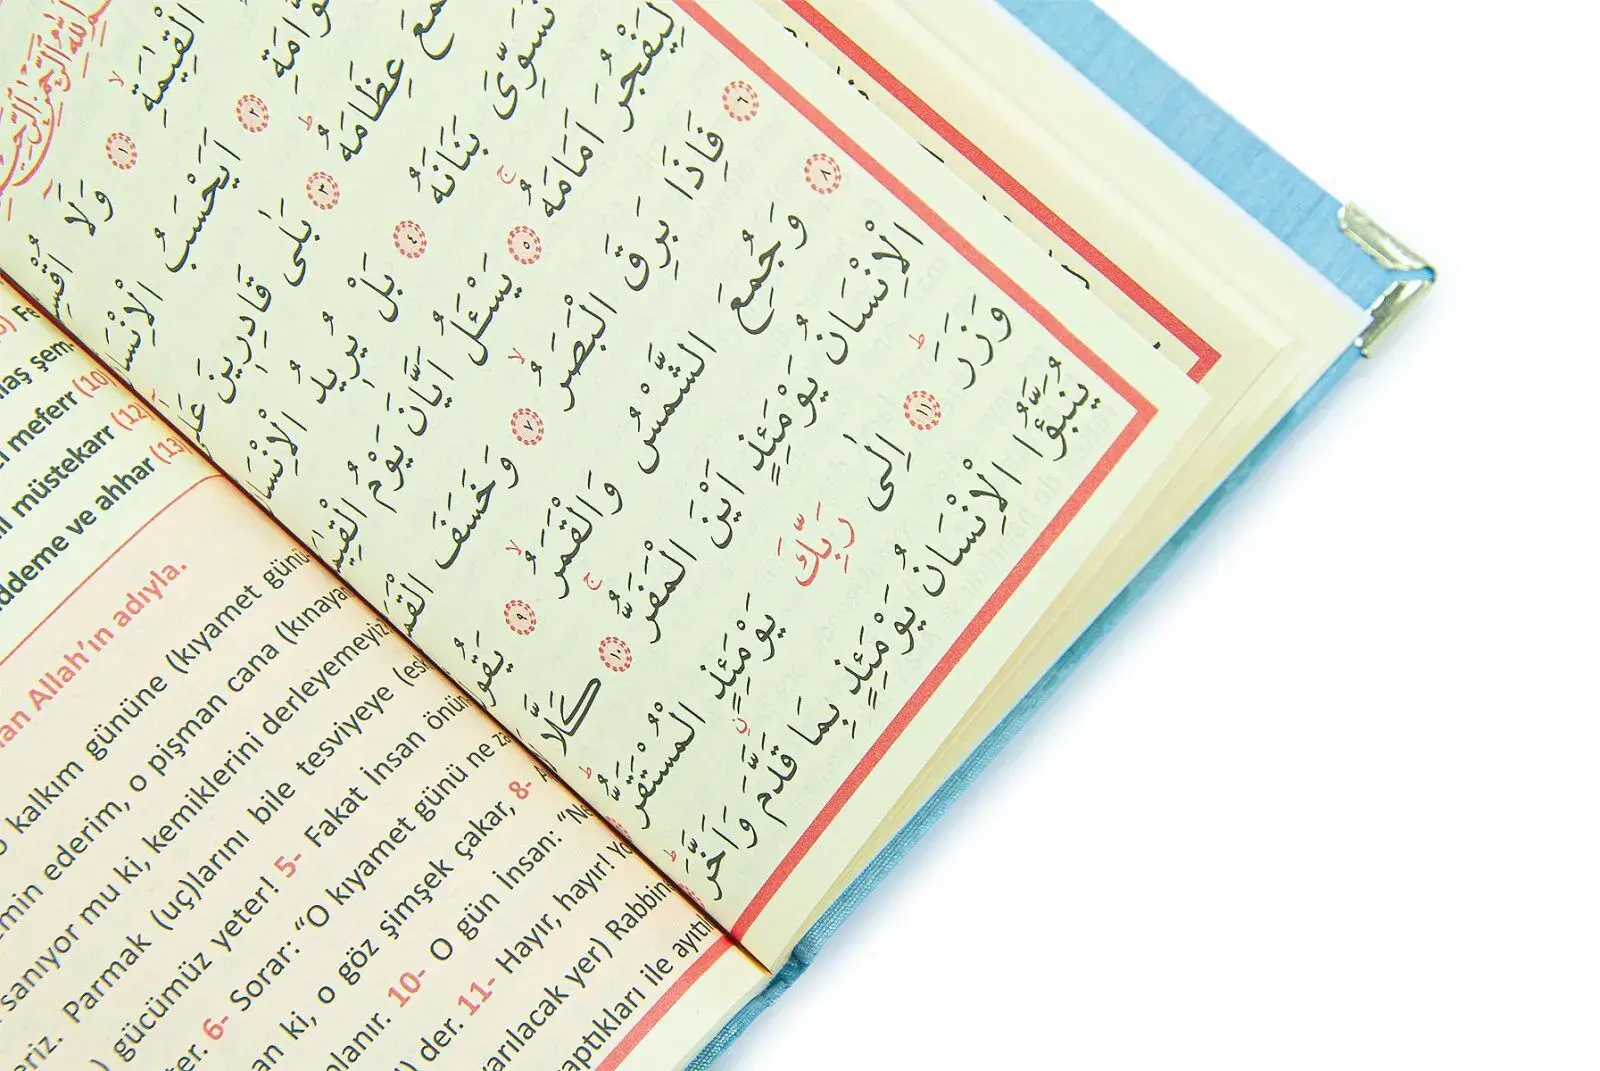 بِسْمِ اللّٰهِ الرَّحْمٰنِ الرَّحِيمِ
الْقِيٰمَةِۙ ١ وَلَٓا اُقْسِمُ
اَيَحْسَبُ الْاِنْسَا ٢ وَّامَةِ
مَعَ عِظَامَهُۜ ٣ بَلٰى قَادِرِينَ عَلٰٓى
نُسَوِّىَ بَنَانَهُ ٤ بَلْ يُرِيدُ الْاِنْسَا
لِيَفْجُرَ اَمَامَهُۚ ٥ يَسْـَٔلُ اَيَّانَ يَوْمُ الْقِيٰ
٦ فَاِذَا بَرِقَ الْبَصَرُۙ ٧ وَخَسَفَ الْقَمَ
٨ وَجُمِعَ الشَّمْسُ وَالْقَمَرُۙ ٩ يَقُو
الْاِنْسَانُ يَوْمَئِذٍ اَيْنَ الْمَفَرُّۚ ١٠ كَلَّا
وَزَرَۜ ١١ اِلٰى رَبِّكَ يَوْمَئِذٍ الْمُسْتَقَرُّۜ
يُنَبَّؤُا الْاِنْسَانُ يَوْمَئِذٍ بِمَا قَدَّمَ وَاَخَّرَۜ
şem
meferr (10)
müstekarr (12)
ddeme ve ahhar (13)
an Allah'ın adıyla.
kalkım gününe (kıyamet günü
min ederim, o pişman cana (kınaya
sanıyor mu ki, kemiklerini derleyemeyiz
eriz. Parmak (uç)larını bile tesviyeye (es
) gücümüz yeter! 5- Fakat İnsan önü
ter. 6- Sorar: "O kıyamet günü ne
an ki, o göz şimşek çakar, 8-
planır. 10- O gün İnsan: "Ne
) der. 11- Hayır, hayır! Yo
varılacak yer) Rabbin
aptıkları ile